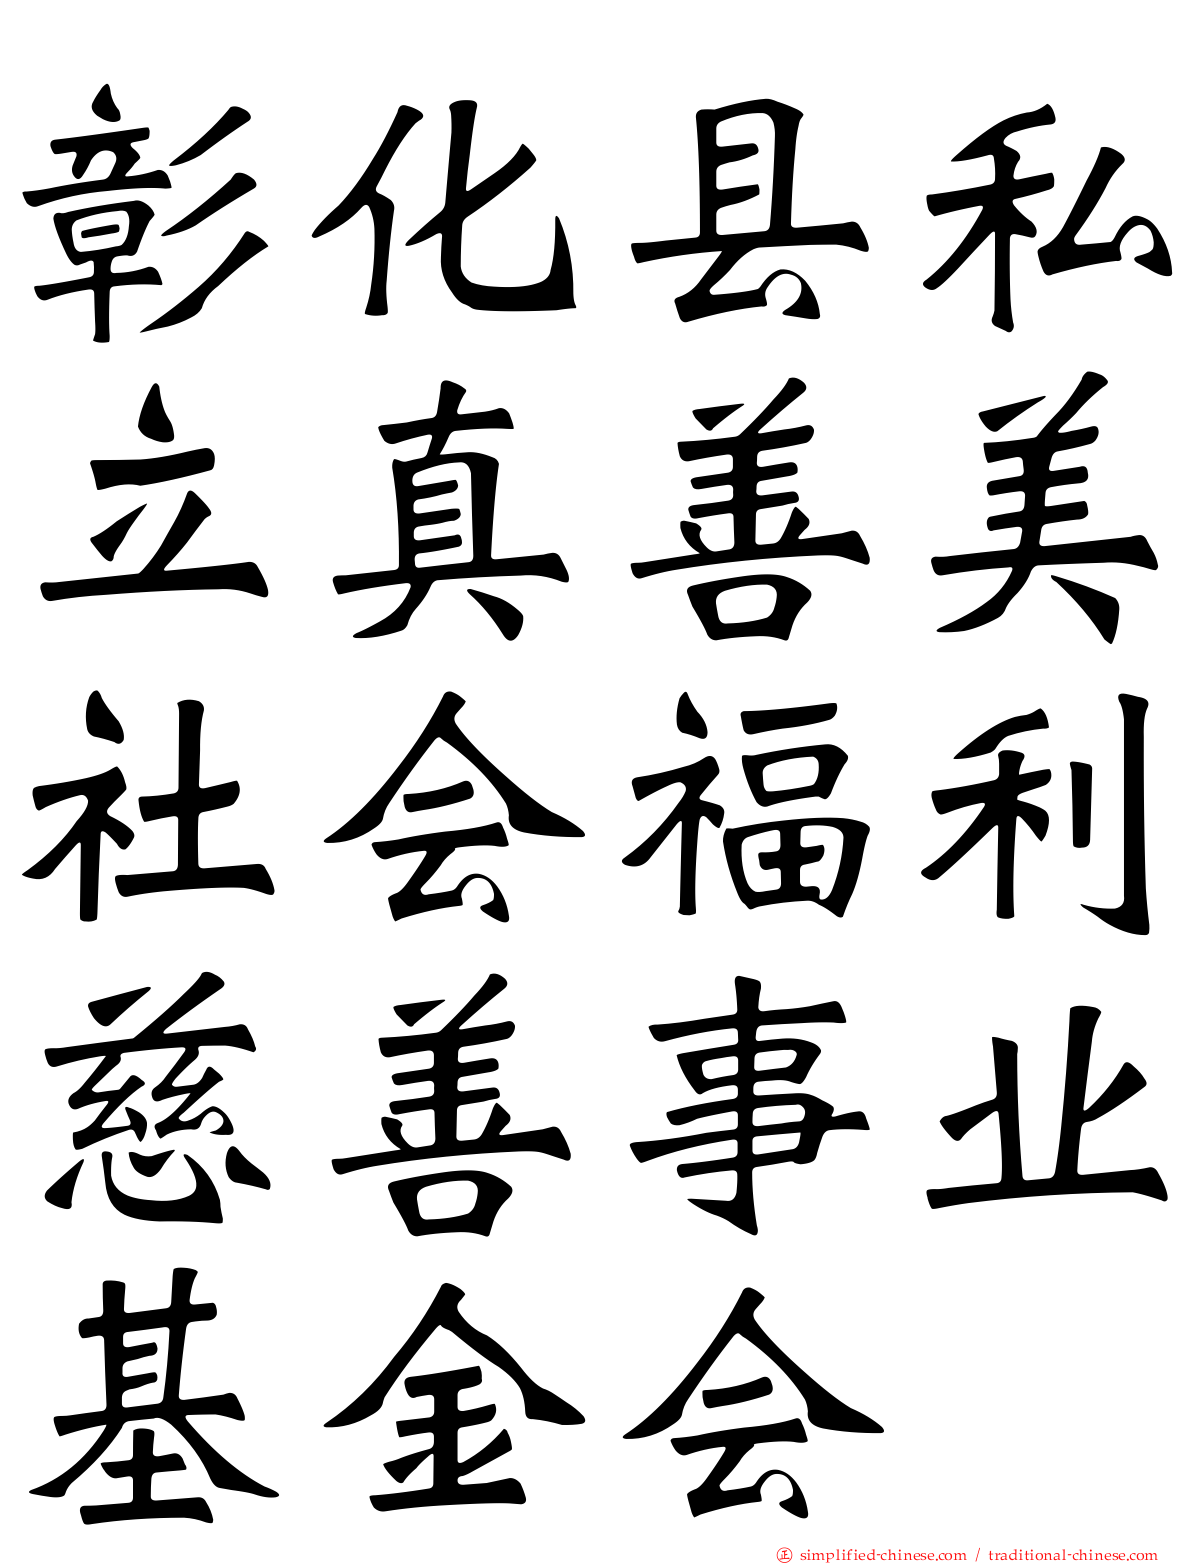 彰化县私
立真善美
社会福利
慈善事业
基金会
正 simplified-chinese.com / traditional-chinese.com